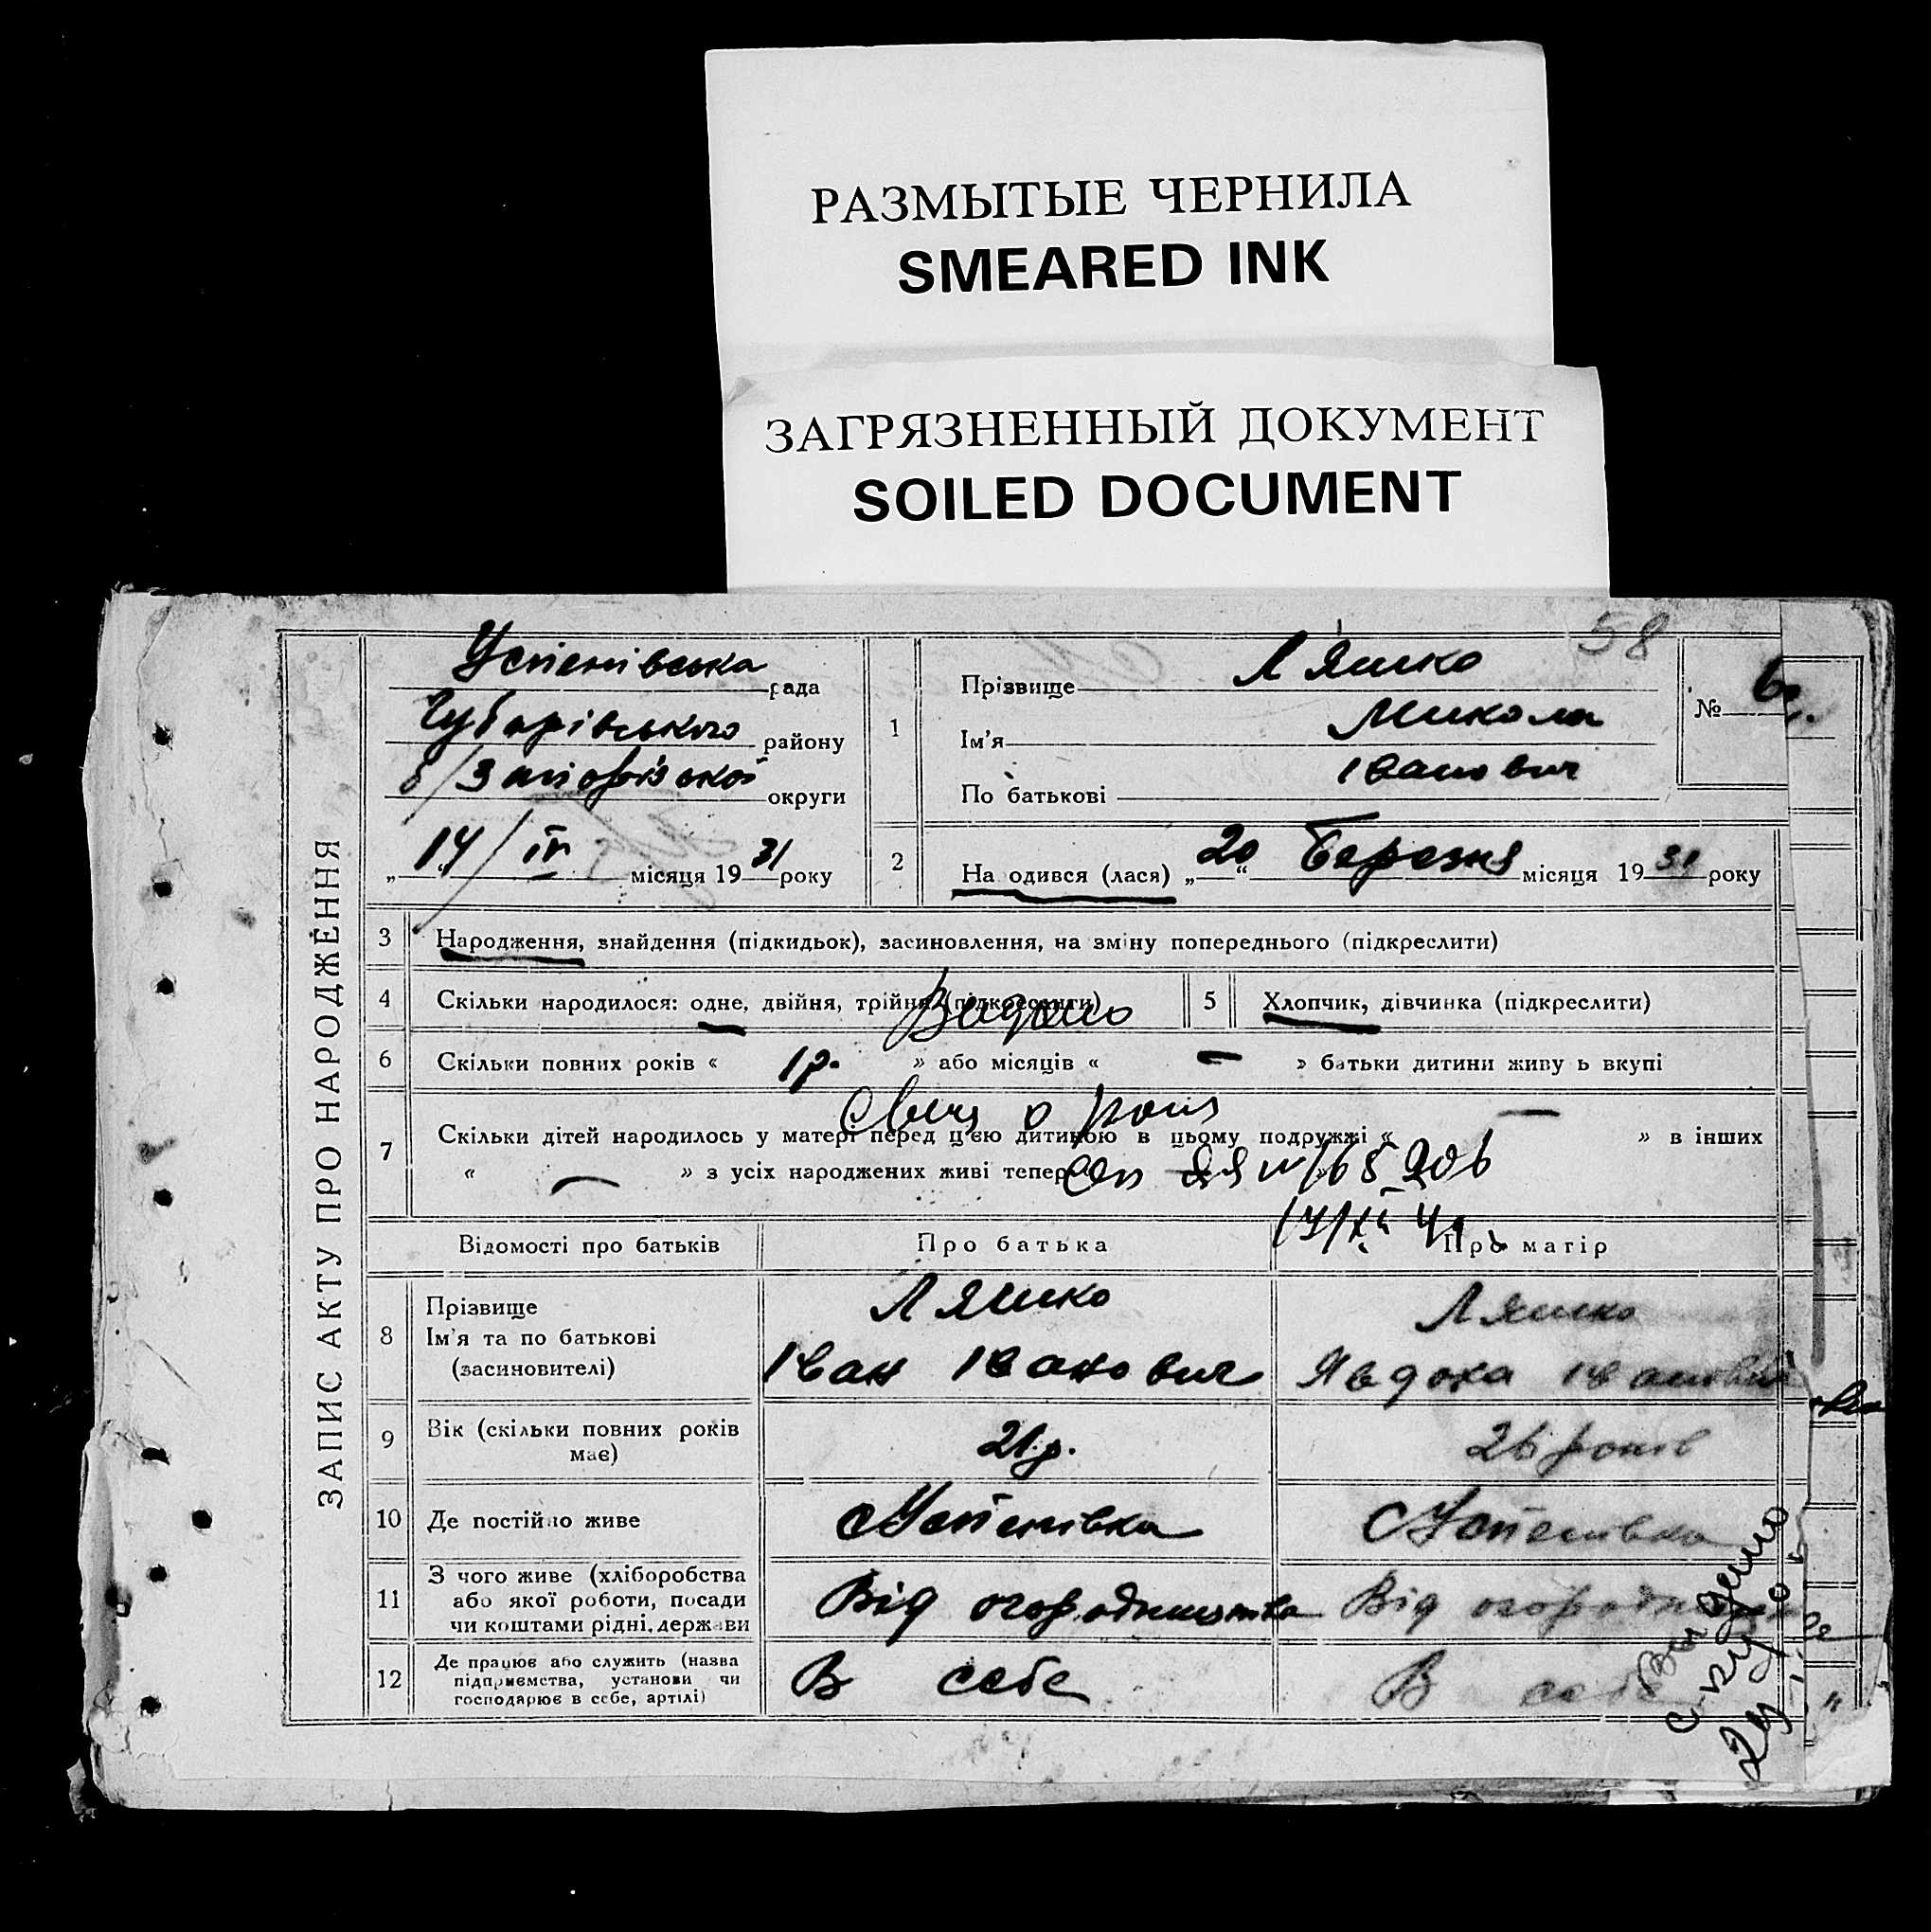 РАЗМЫТЫЕ ЧЕРНИЛА
SMEARED INK
ЗАГРЯЗНЕННЫЙ ДОКУМЕНТ
SOILED DOCUMENT
58
ЗАПИС АКТУ ПРО НАРОДЖЕННЯ
Успенівська рада
Чубарівського району
б/Запорізької округи
„ 14/IV місяця 1931 року
1 Прізвище Ляшко
Ім'я Микола
По батькові Іванович
№
2 На одився (лася) „20“ Березня місяця 1931 року
3 Народження, знайдення (підкидьок), засиновлення, на зміну попереднього (підкреслити)
4 Скільки народилося: одне, двійня, трійня (підкреслити)
5 Хлопчик, дівчинка (підкреслити)
Видано
6 Скільки повних років « 1р. » або місяців « – » батьки дитини живу ь вкупі
7 Скільки дітей народилось у матері перед цією дитиною в цьому подружжі « — » в інших
« — » з усіх народжених живі тепер
Відомості про батьків Про батька Про матір
8 Прізвище
Ім'я та по батькові
(засиновителі)
Ляшко
Іван Іванович
Ляшко
Явдоха
9 Вік (скільки повних років
має)
21р.
26 років
10 Де постійно живе
с Успенівка
с Успенівка
11 З чого живе (хліборобства
або якої роботи, посади
чи коштами рідні, держави
Від огородництва
Від
12 Де працює або служить (назва
підприємства, установи чи
господарює в себе, артілі)
В себе
В себе